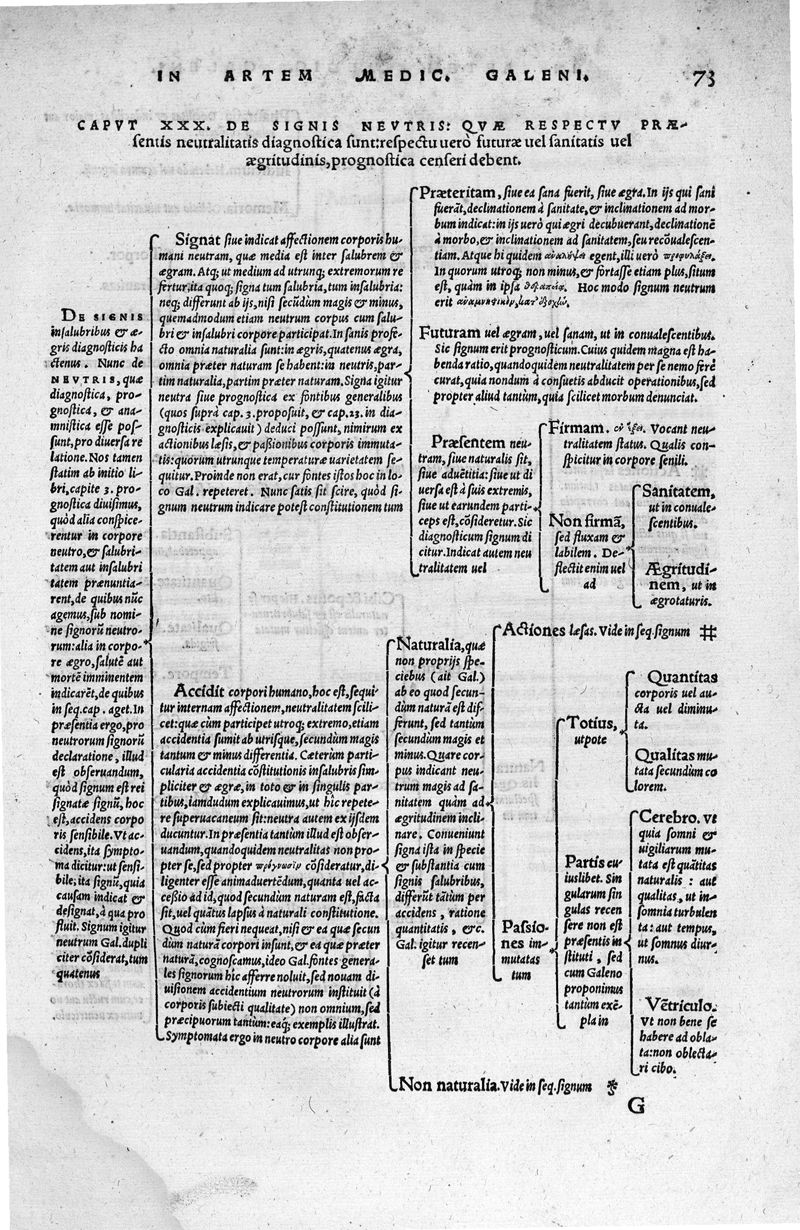 IN ARTEM MEDIC. GALENI. 73
CAPVT XXX. DE SIGNIS NEVTRIS: QVÆ RESPECTV PRÆ-
sentis neutralitatis diagnostica sunt: respectu uerò futuræ uel sanitatis uel
ægritudinis, prognostica censeri debent.
DE SIGNIS
insalubribus & æ-
gris diagnosticis ha
ctenus. Nunc de
NEVTRIS, quæ
diagnostica, pro-
gnostica, & ana-
mnistica esse pos-
sunt, pro diuersa re
latione. Nos tamen
statim ab initio li-
bri, capite 3. pro-
gnostica diuisimus,
quòd alia conspice-
rentur in corpore
neutro, & salubri-
tatem aut insalubri
tatem prænuntia-
rent, de quibus nūc
agemus, sub nomi-
ne signorū neutro-
rum: alia in corpo-
re ægro, salutē aut
mortē imminentem
indicarēt, de quibus
in seq. cap. aget. In
præsentia ergo, pro
neutrorum signorū
declaratione, illud
est obseruandum,
quòd signum est rei
signatæ signū, hoc
est, accidens corpo
ris sensibile. Vt ac-
cidens, ita sympto-
ma dicitur: ut sensi-
bile, ita signū, quia
causam indicat &
designat, à qua pro
fluit. Signum igitur
neutrum Gal. dupli
citer cōsiderat, tum
quatenus
Signat siue indicat affectionem corporis hu-
mani neutram, quæ media est inter salubrem &
ægram. Atq; ut medium ad utrunq; extremorum re
fertur, ita quoq; signa tum salubria, tum insalubria:
neq; differunt ab ijs, nisi secūdum magis & minus,
quemadmodum etiam neutrum corpus cum salu-
bri & insalubri corpore participat. In sanis profe-
cto omnia naturalia sunt: in ægris, quatenus ægra,
omnia præter naturam se habent: in neutris, par-
tim naturalia, partim præter naturam. Signa igitur
neutra siue prognostica ex fontibus generalibus
(quos suprà cap. 3. proposuit, & cap. 23. in dia-
gnosticis explicauit) deduci possunt, nimirum ex
actionibus læsis, & passionibus corporis immuta-
tis: quorum utrunque temperaturæ uarietatem se-
quitur. Proinde non erat, cur fontes istos hoc in lo-
co Gal. repeteret. Nunc satis sit scire, quòd si-
gnum neutrum indicare potest constitutionem tum
Præteritam, siue ea sana fuerit, siue ægra. In ijs qui sani
fuerāt, declinationem à sanitate, & inclinationem ad mor-
bum indicat: in ijs uerò qui ægri decubuerant, declinationē
à morbo, & inclinationem ad sanitatem, seu recōualescen-
tiam. Atque hi quidem egent, illi uerò
In quorum utroq; non minus, & fortasse etiam plus, situm
est, quàm in ipsa Hoc modo signum neutrum
erit
Futuram uel ægram, uel sanam, ut in conualescentibus.
Sic signum erit prognosticum. Cuius quidem magna est ha-
benda ratio, quandoquidem neutralitatem per se nemo ferè
curat, quia nondum à consuetis abducit operationibus, sed
propter aliud tantùm, quia scilicet morbum denunciat.
Præsentem neu-
tram, siue naturalis sit,
siue aduētitia: siue ut di
uersa est à suis extremis,
siue ut earundem parti-
ceps est, cōsideretur. Sic
diagnosticum signum di
citur. Indicat autem neu
tralitatem uel
Firmam. Vocant neu-
tralitatem status. Qualis con-
spicitur in corpore senili.
Non firmā,
sed fluxam &
labilem. De-
flectit enim uel
ad
Sanitatem,
ut in conuale-
scentibus.
Ægritudi-
nem, ut in
ægrotaturis.
Accidit corpori humano, hoc est, sequi-
tur internam affectionem, neutralitatem scili-
cet: quæ cùm participet utroq; extremo, etiam
accidentia sumit ab utrisque, secundùm magis
tantum & minus differentia. Cæterùm parti-
cularia accidentia cōstitutionis insalubris sim-
pliciter & ægræ, in toto & in singulis par-
tibus, iamdudum explicauimus, ut hîc repete-
re superuacaneum sit: neutra autem ex ijsdem
ducuntur. In præsentia tantùm illud est obser-
uandum, quandoquidem neutralitas non pro-
pter se, sed propter πρόγνωσιν cōsideratur, di-
ligenter esse animaduertēdum, quanta uel ac-
cessio ad id, quod secundùm naturam est, facta
sit, uel quātus lapsus à naturali constitutione.
Quod cùm fieri nequeat, nisi & ea quæ secun
dùm naturā corpori insunt, & ea quæ præter
naturā, cognoscamus, ideo Gal. fontes genera-
les signorum hîc afferre noluit, sed nouam di-
uisionem accidentium neutrorum instituit (à
corporis subiecti qualitate) non omnium, sed
præcipuorum tantùm: eaq; exemplis illustrat.
Symptomata ergo in neutro corpore alia sunt
Naturalia, quæ
non proprijs spe-
ciebus (ait Gal.)
ab eo quod secun-
dùm naturā est dif-
ferunt, sed tantùm
secundùm magis et
minus. Quare cor-
pus indicant neu-
trum magis ad sa-
nitatem quàm ad
ægritudinem incli-
nare. Conueniunt
signa ista in specie
& substantia cum
signis salubribus,
differūt tātùm per
accidens, ratione
quantitatis, &c.
Gal. igitur recen-
set tum
Actiones læsas. Vide in seq. signum #
Passio-
nes im-
mutatas
tum
Totius,
utpote
Quantitas
corporis uel au-
cta uel diminu-
ta.
Qualitas mu-
tata secundùm co
lorem.
Partis cu-
iuslibet. Sin
gularum sin
gulas recen
sere non est
præsentis in
stituti, sed
cum Galeno
proponimus
tantùm exē-
pla in
Cerebro. Vt
quia somni &
uigiliarum mu-
tata est quātitas
naturalis: aut
qualitas, ut in-
somnia turbulen
ta: aut tempus,
ut somnus diur-
nus.
Vētriculo.
Vt non bene se
habere ad obla-
ta: non oblecta-
ri cibo.
Non naturalia. Vide in seq. signum
G